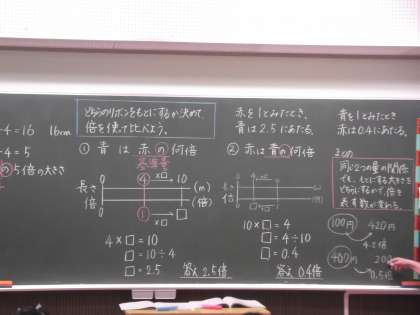 -4=16 16cm
-4=5
の5倍の大きさ
どちらのリボンをもとにするか決めて、
倍を使って比べよう。
① 青は赤の何倍
基準量
長さ 0 4 10 (m)
×□
倍 0 1 □ (倍)
4×□=10
□=10÷4
□=2.5
答え 2.5倍
赤を1とみたとき、
青は2.5にあたる。
② 赤は青の何倍
長さ 0 4 10
倍 0 □
10×□=4
□=4÷10
□=0.4
答え 0.4倍
青を1とみたとき、
赤は0.4にあたる。
まとめ
同じ2つの量の関係
でも、もとにする大きさを
どちらにするかで、倍を
表す数が変わる。
100円 420円
4.2倍
400円 200
0.5倍